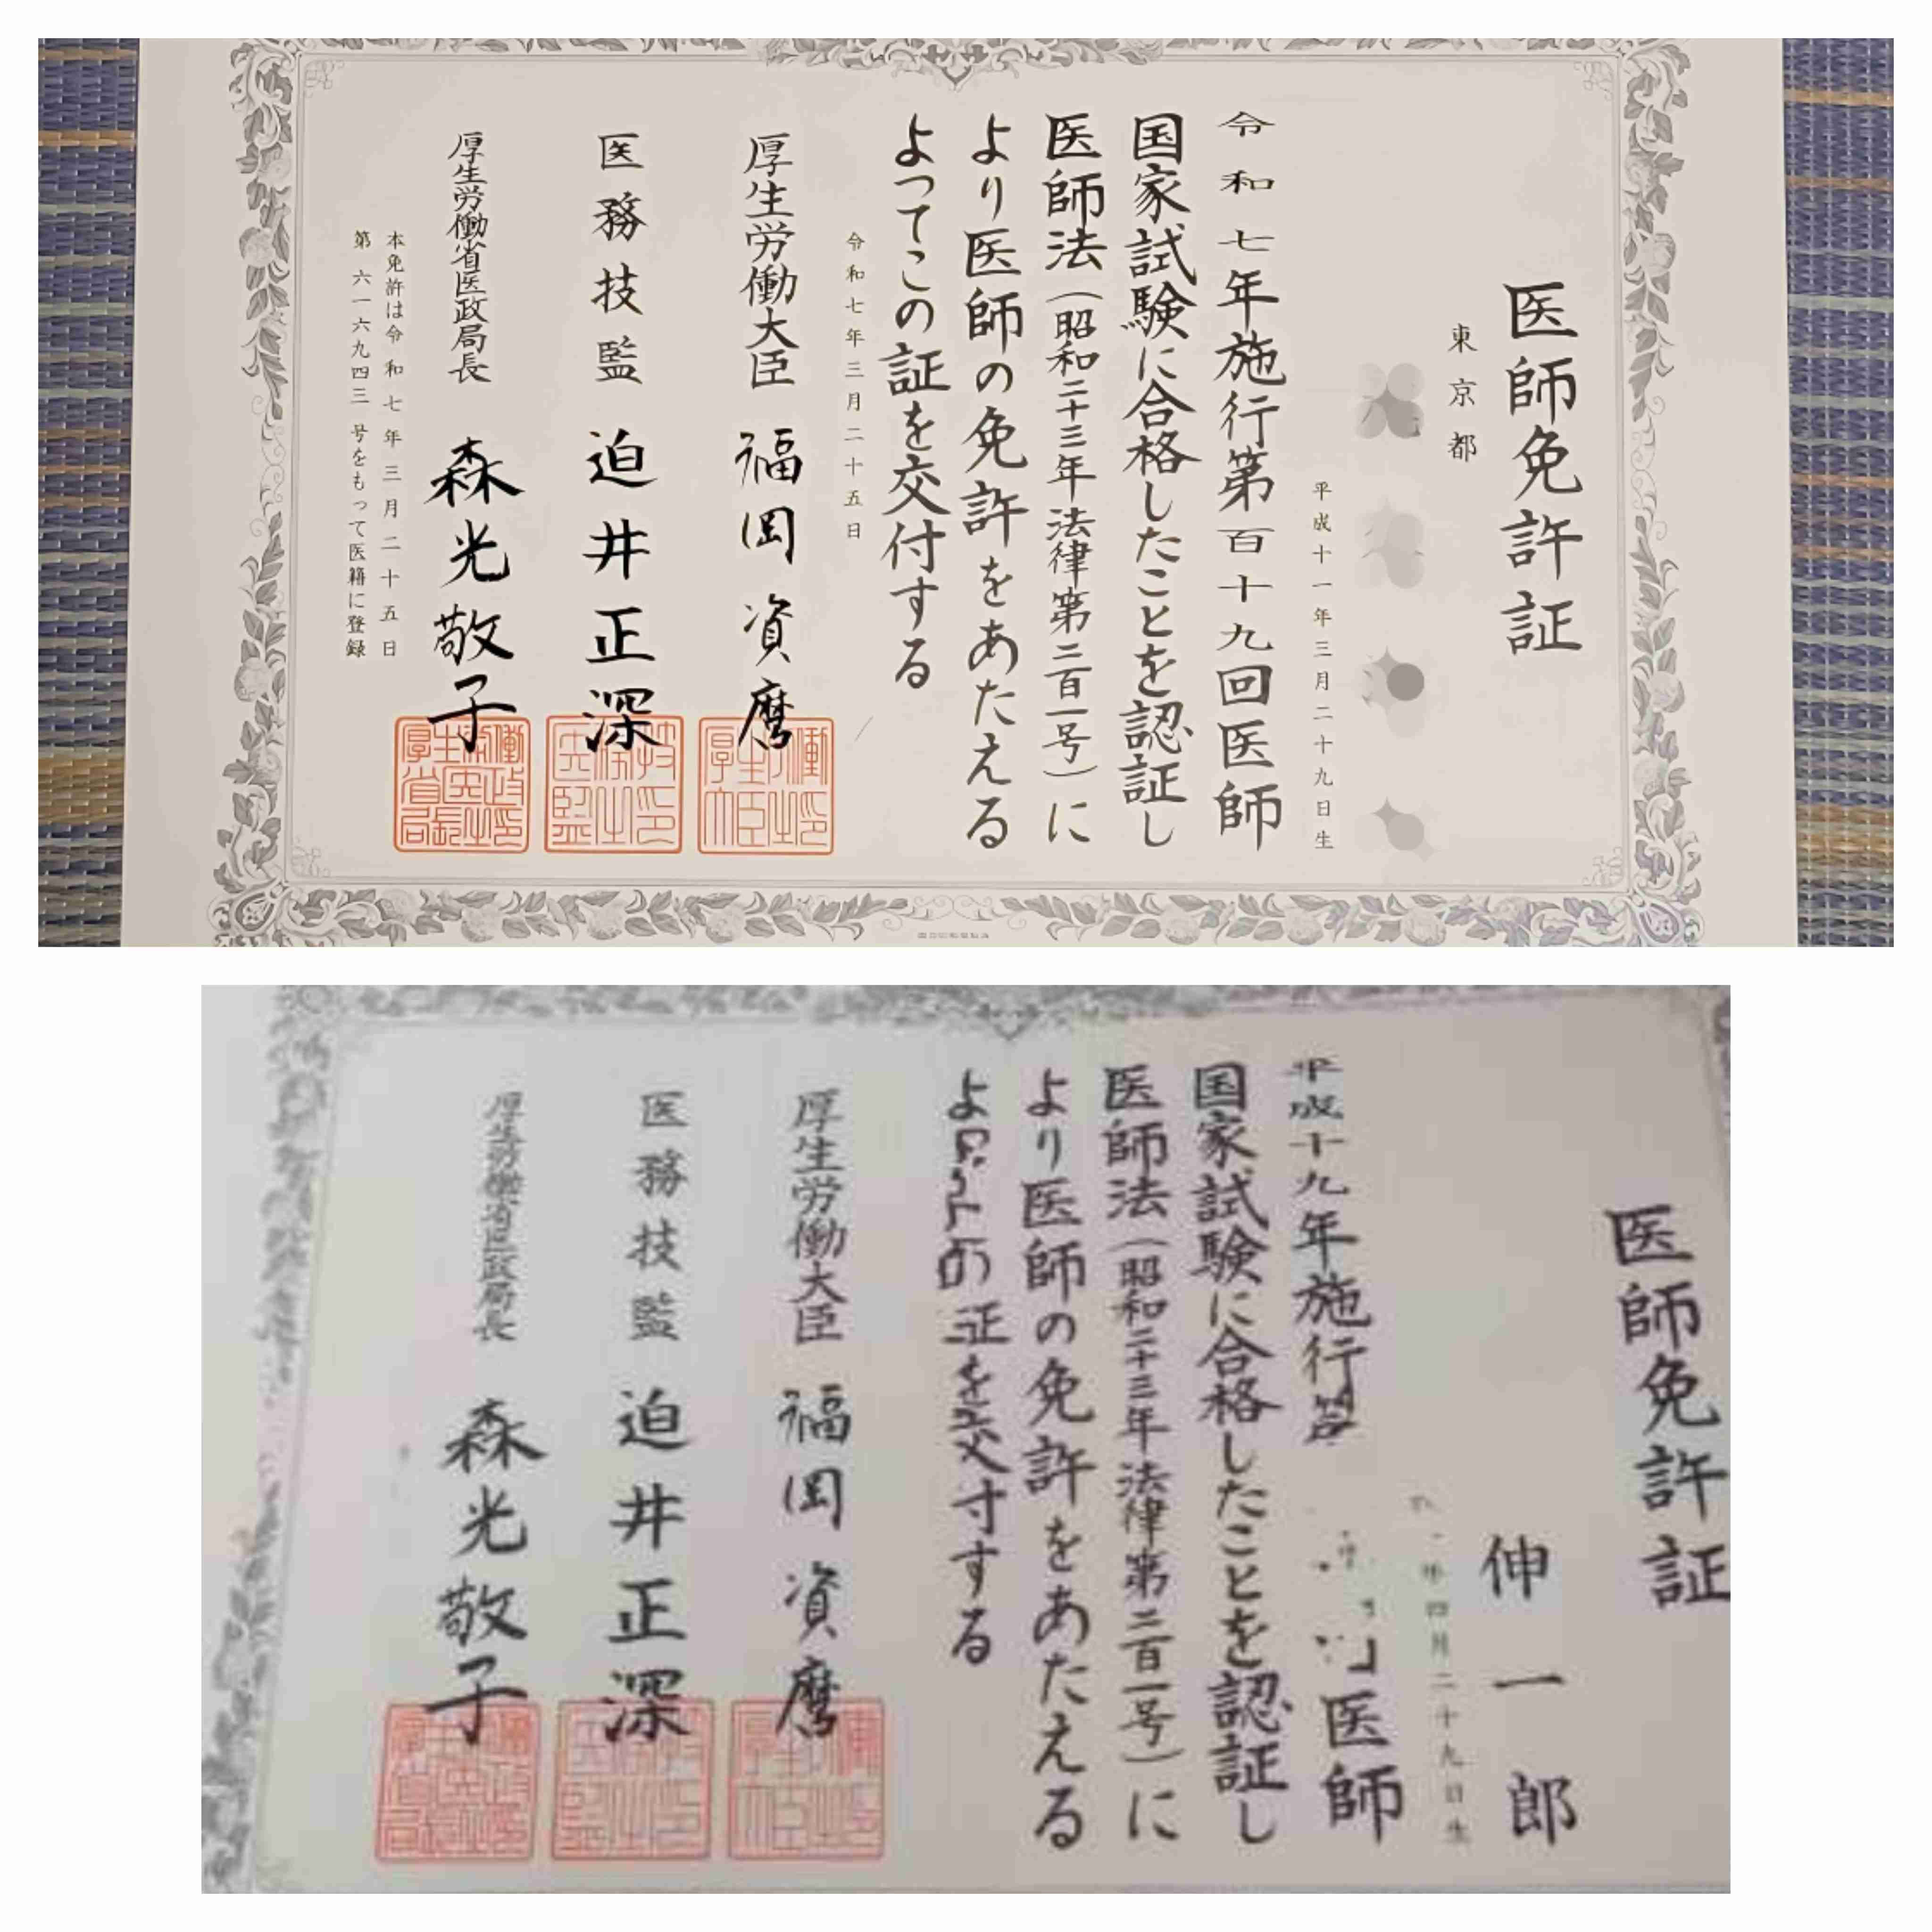 医師免許証
東京都
平成十一年三月二十九日生
令和七年施行第百十九回医師
国家試験に合格したことを認証し
医師法(昭和二十三年法律第二百一号)に
より医師の免許をあたえる
よつてこの証を交付する
令和七年三月二十五日
厚生労働大臣 福岡資麿
医務技監 迫井正深
厚生労働省医政局長 森光敬子
本免許は令和七年三月二十五日
第六一六九四三号をもって医籍に登録
医師免許証
伸一郎
年四月二十九日生
平成十九年施行第
医師
国家試験に合格したことを認証し
医師法(昭和二十三年法律第二百一号)に
より医師の免許をあたえる
よ
を交寸する
厚生労働大臣 福岡資麿
医務技監 迫井正深
厚生労働省医政局長 森光敬子